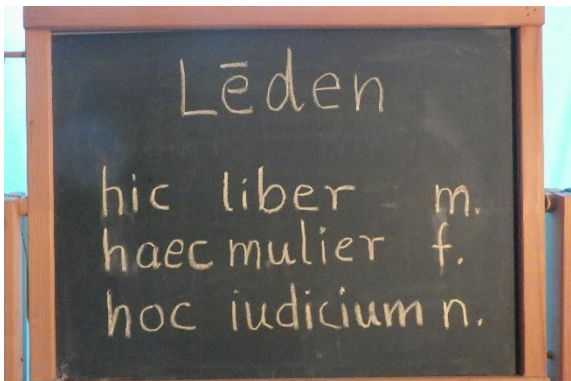 Lēden
hic liber m.
haec mulier f.
hoc iudicium n.